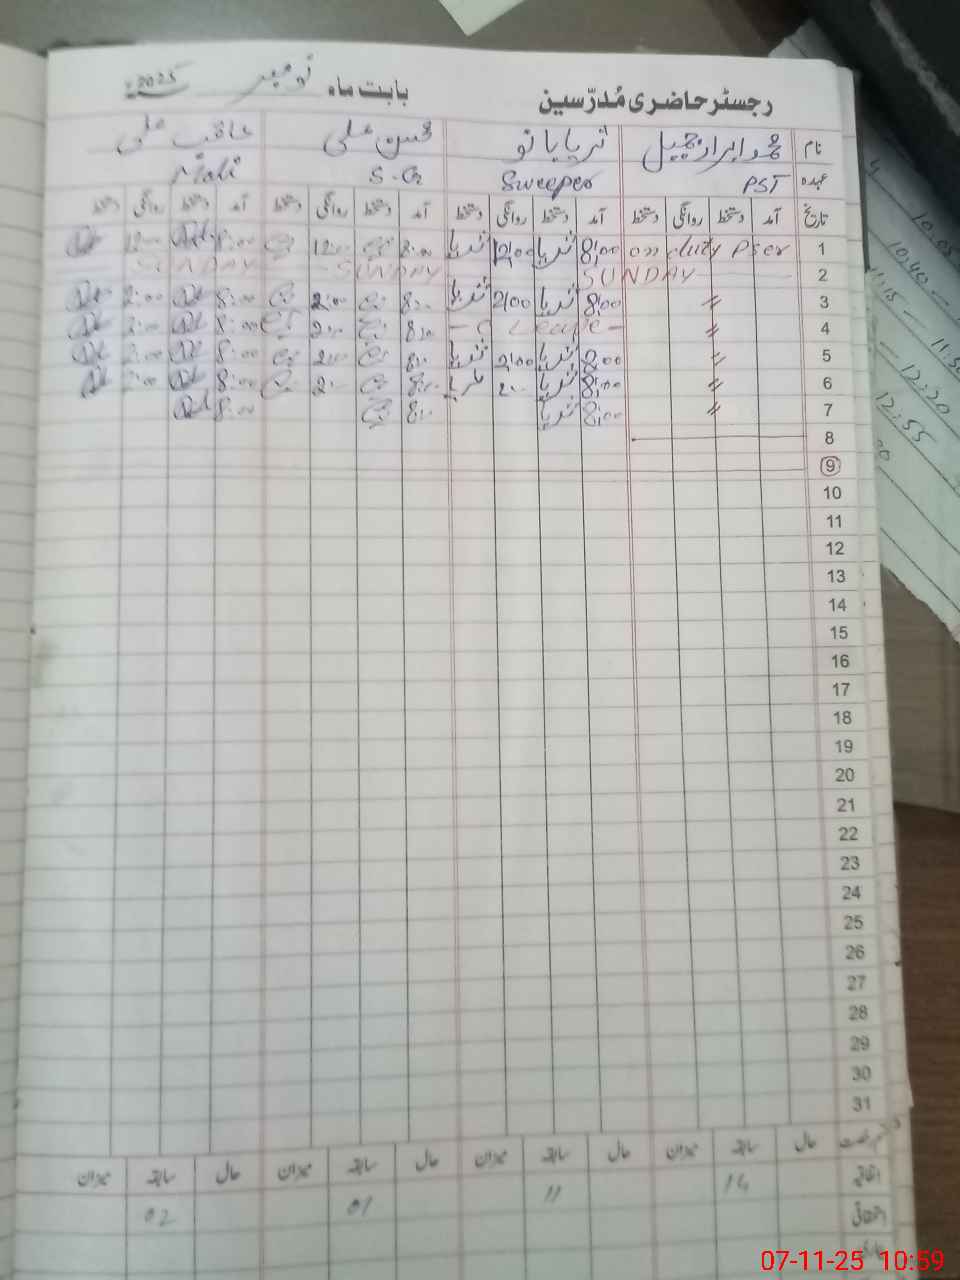 رجسٹر حاضری مُدرّسین بابت ماہ نومبر 2025
نام محمد ابرار جمیل ثریا بانو محسن علی عاقب علی
عہدہ PST Sweeper S-G Mali
تاریخ آمد دستخط روانگی دستخط آمد دستخط روانگی دستخط آمد دستخط روانگی دستخط آمد دستخط روانگی دستخط
1 on duty PSER 8:00 ثریا 12:00 ثریا 8:00 12:00 8:00 12:00
2 SUNDAY SUNDAY SUNDAY
3 〃 8:00 ثریا 2:00 ثریا 8:00 2:00 8:00 2:00
4 〃 - C Leave - 8:00 2:00 8:00 2:00
5 〃 8:00 ثریا 2:00 ثریا 8:00 2:00 8:00 2:00
6 〃 8:00 ثریا 2:00 ثریا 8:00 2:00 8:00 2:00
7 〃 8:00 ثریا 8:00 8:00
8
9
10
11
12
13
14
15
16
17
18
19
20
21
22
23
24
25
26
27
28
29
30
31
حال سابقہ میزان حال سابقہ میزان حال سابقہ میزان حال سابقہ میزان
اتفاقیہ 14 11 01 02
استحقاقی
07-11-25 10:59
10.05
10.40 —
11.15 —
11.50
— 12.20
12.55